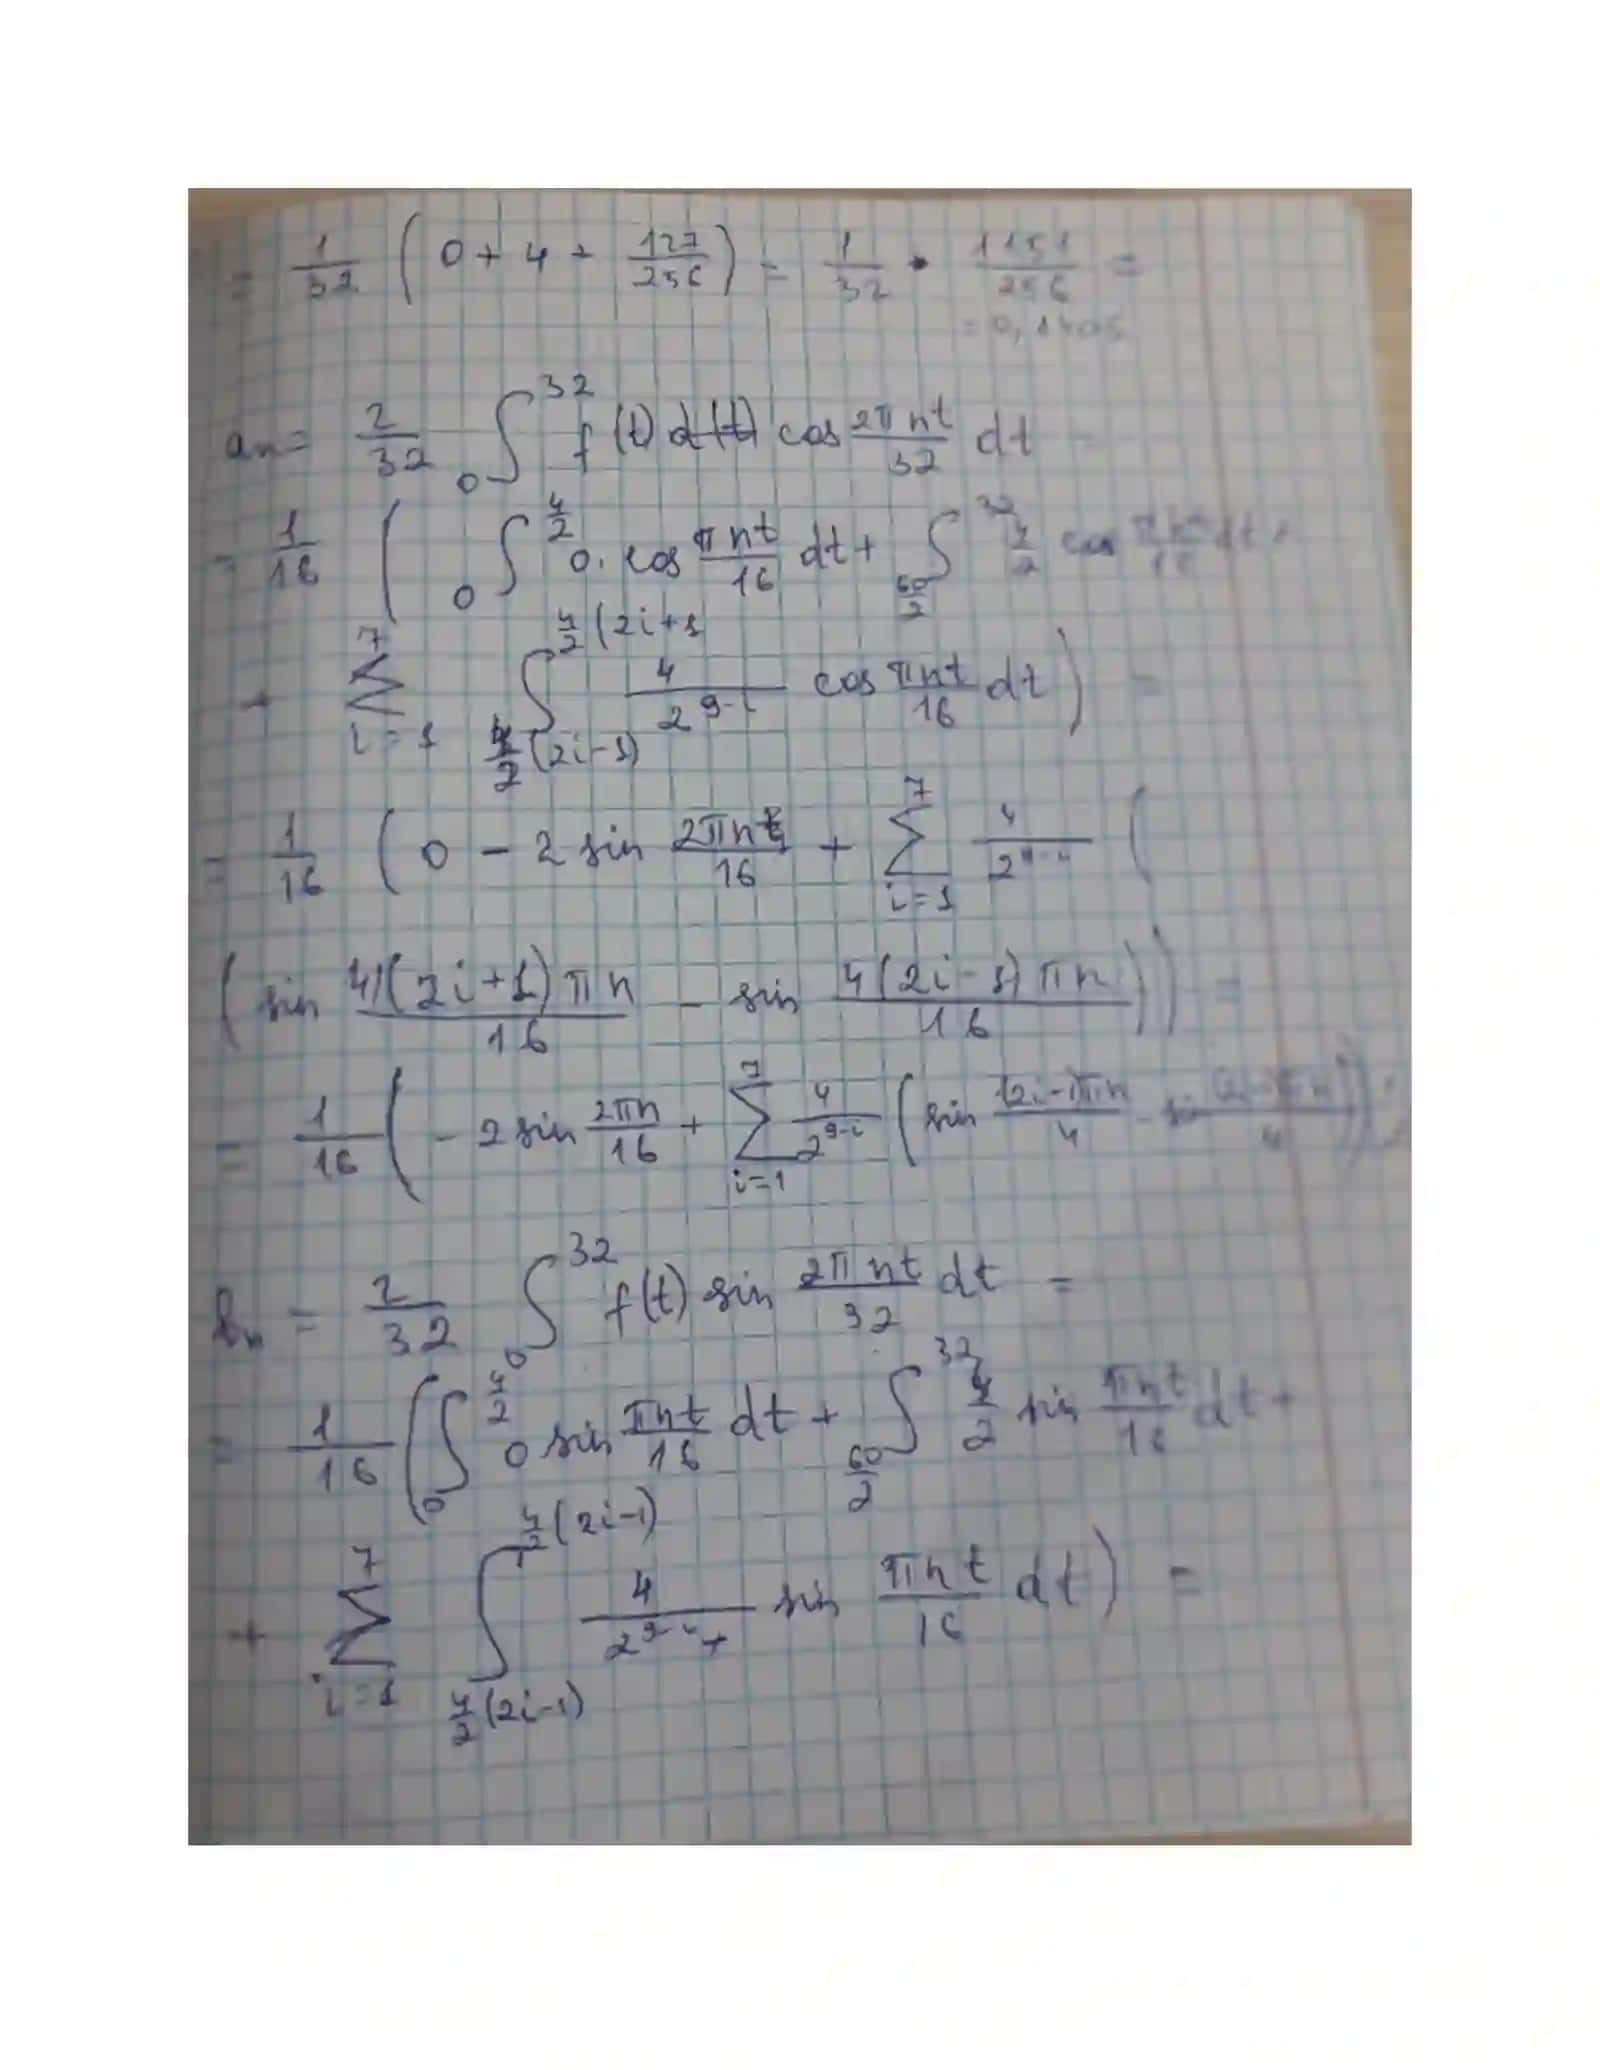 = 1/32 (0 + 4 + 127/256) = 1/32 • 1151/256 =
= 0,1405
aₙ = 2/32 ∫₀³² f(t) d(t) cos 2πnt/32 dt =
= 1/16 ( ∫₀^(4/2) 0 · cos πnt/16 dt + ∫_(60/2)^32 4/2 cos πnt/16 dt +
+ ∑_(i=1)^7 ∫_(4/2 (2i-1))^(4/2 (2i+1) 4/2^(9-i) cos πnt/16 dt ) =
= 1/16 ( 0 - 2 sin 2πn/16 + ∑_(i=1)^7 4/2^(9-i) (
( sin 4(2i+1)πn/16 - sin 4(2i-1)πn/16 )) =
= 1/16 ( - 2 sin 2πn/16 + ∑_(i=1)^7 4/2^(9-i) ( sin (2i-1)πn/4 - sin (2i-1)πn/4 ))
bₙ = 2/32 ∫₀³² f(t) sin 2πnt/32 dt =
= 1/16 ( ∫₀^(4/2) 0 sin πnt/16 dt + ∫_(60/2)^32 4/2 sin πnt/16 dt +
+ ∑_(i=1)^7 ∫_(4/2 (2i-1))^(4/2 (2i-1)) 4/2^(9-i) sin πnt/16 dt ) =